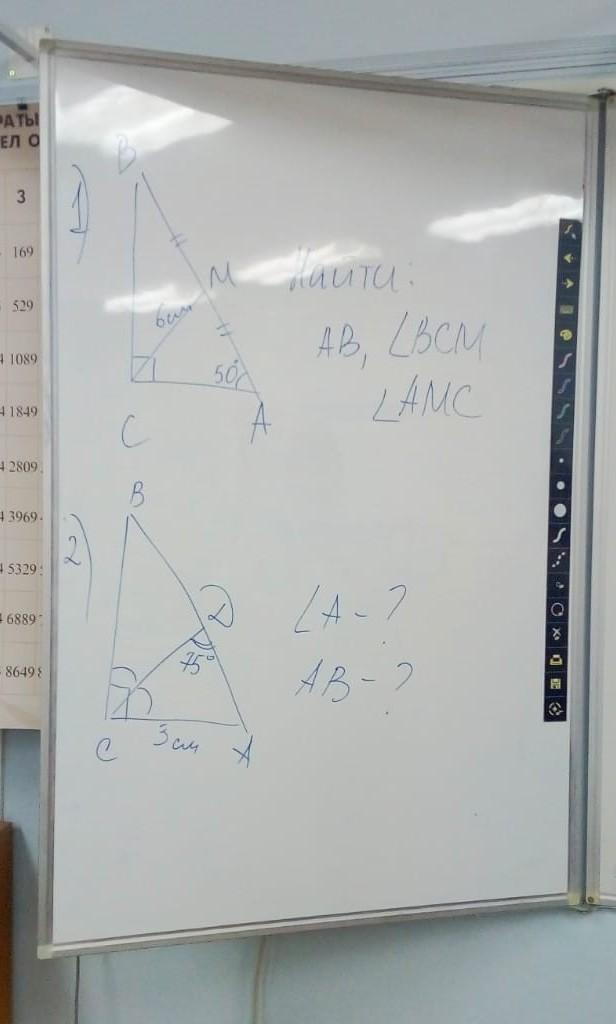 РАТЫ
ЕЛ О
3
169
529
1089
4 1849
4 2809
4 3969
4 5329
4 6889
4 8649 8
1)
B
M
6 см
50°
C
A
Найти:
AB, ∠BCM
∠AMC
2)
B
D
75°
C
3 см
A
∠A - ?
AB - ?